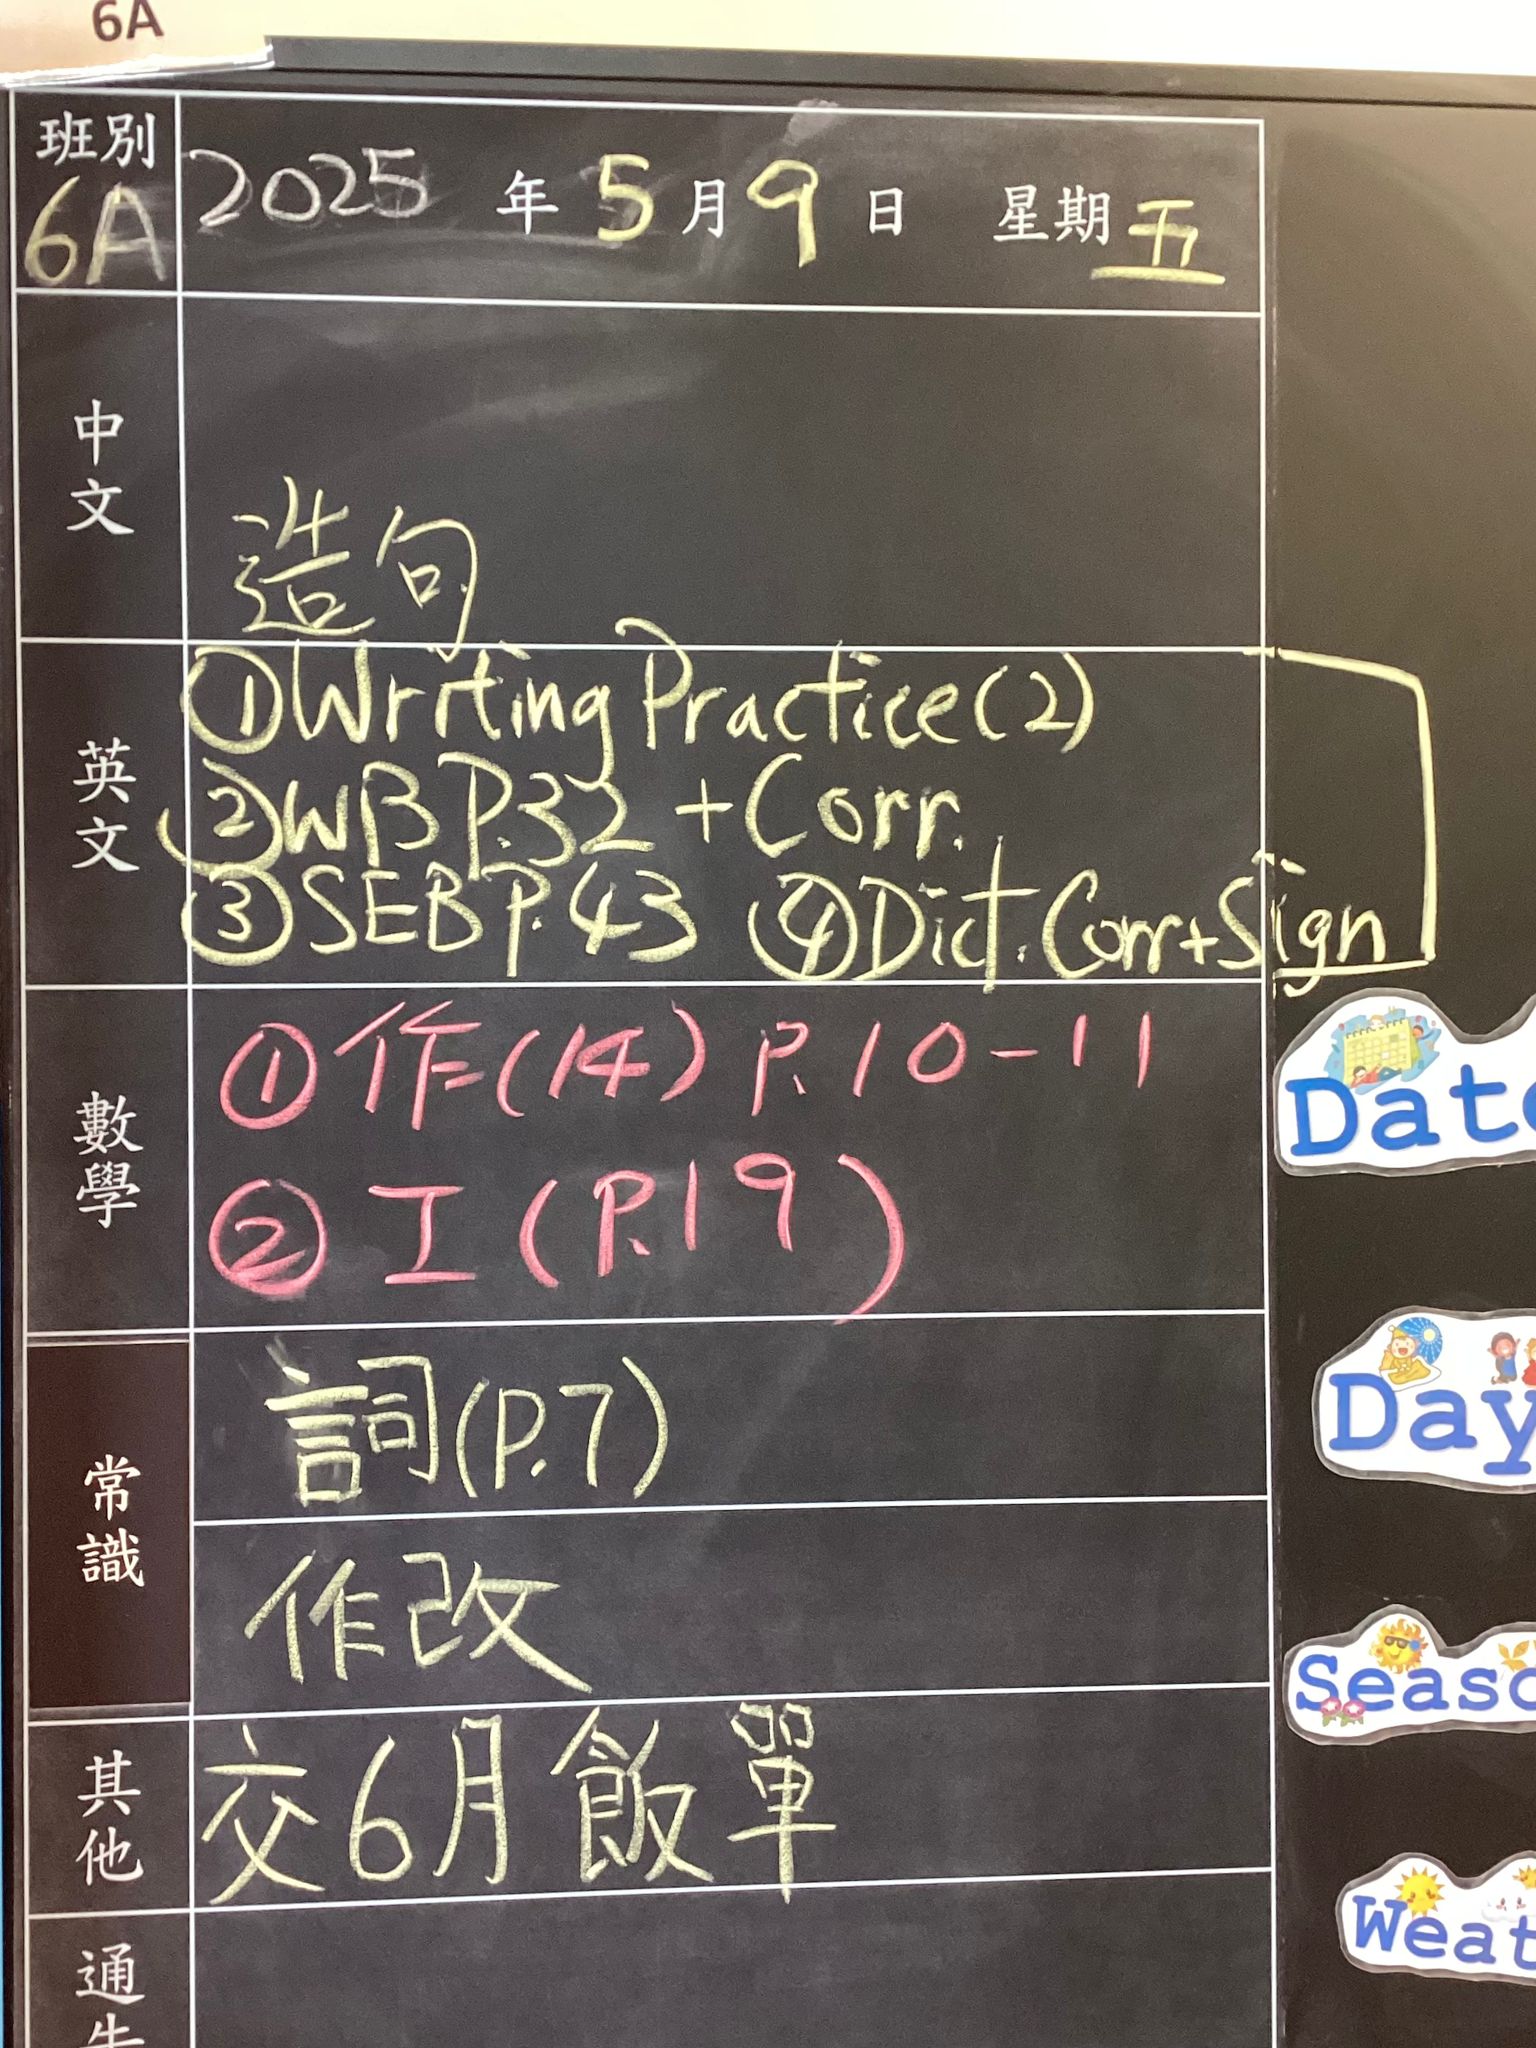 6A
班別
6A
2025 年 5 月 9 日 星期 五
中文
造句
英文
①Writing Practice(2)
②WB P.32 + Corr.
③SEB P.43 ④Dict. Corr+Sign
數學
①作(14) P.10-11
②工(P.19)
常識
詞(P.7)
作改
其他
交6月飯單
通
Date
Day
Seaso
Weat